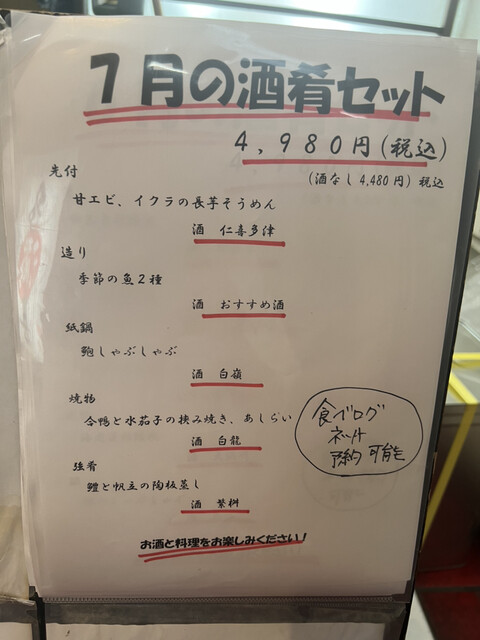 7月の酒肴セット
4,980円(税込)
(酒なし 4,480円) 税込
先付
甘エビ、イクラの長芋そうめん
酒 仁喜多津
造り
季節の魚2種
酒 おすすめ酒
紙鍋
鮑しゃぶしゃぶ
酒 白嶺
焼物
合鴨と水茄子の挟み焼き、あしらい
酒 白龍
強肴
鱧と帆立の陶板蒸し
酒 繁桝
食べログ
ネット
予約可能
お酒と料理をお楽しみください!